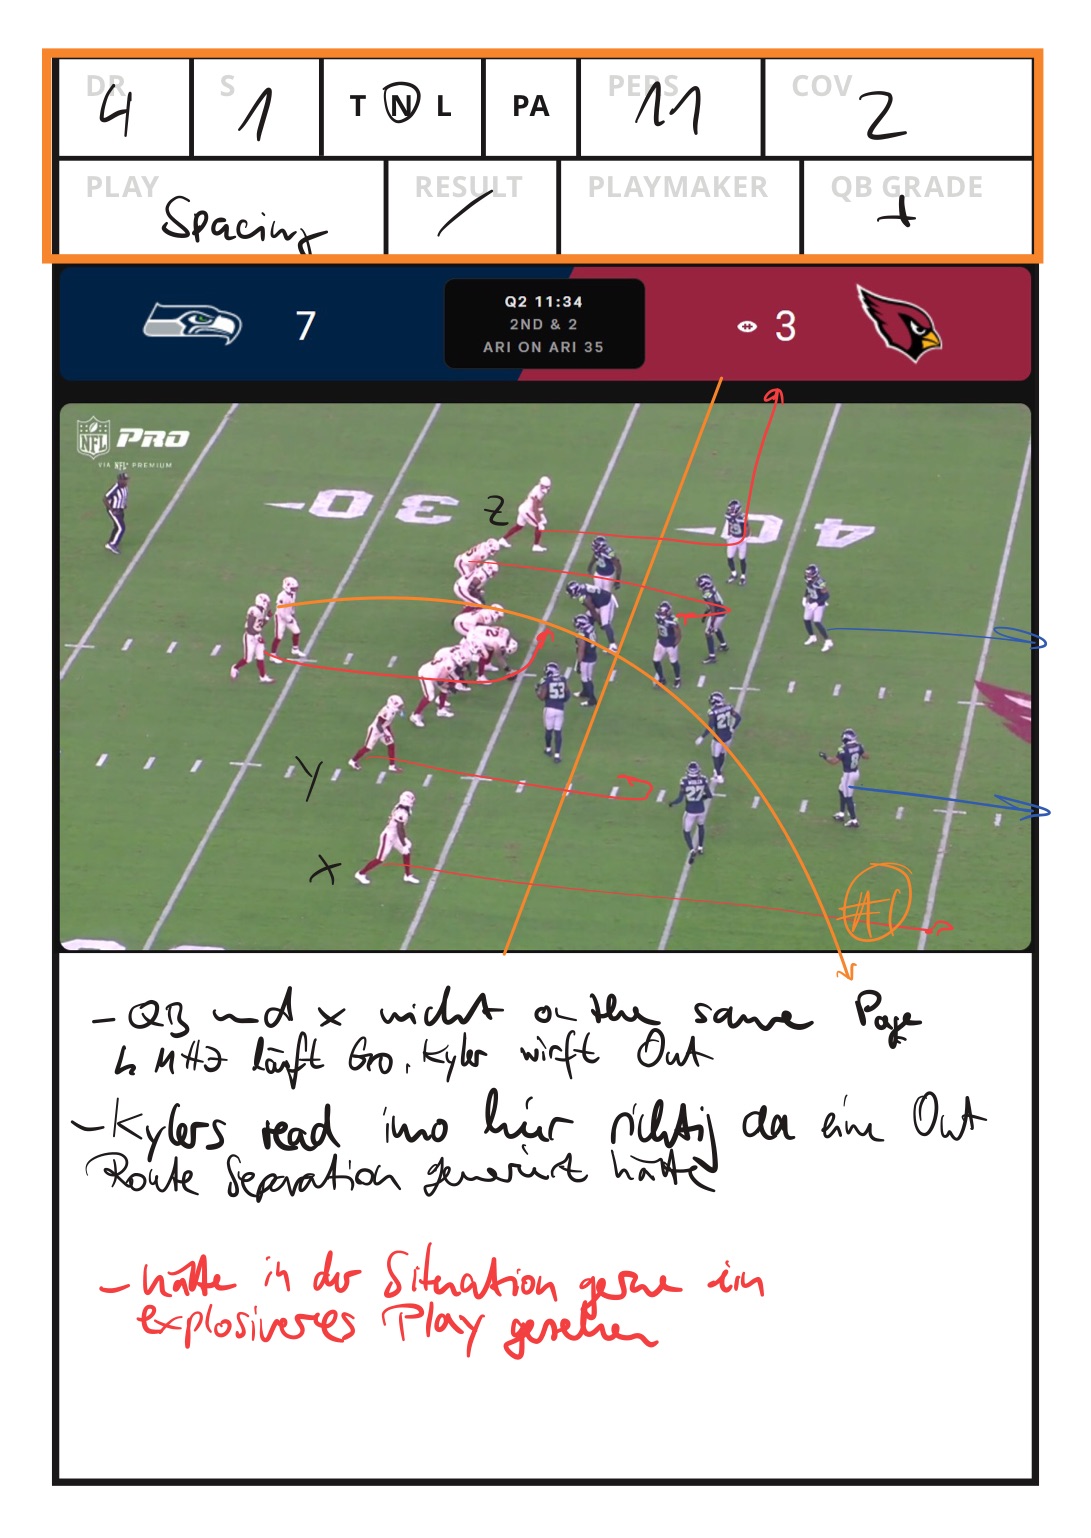 DR 4 S 1 T N L PA PERS 11 COV 2
PLAY Spacing RESULT / PLAYMAKER QB GRADE +
7 Q2 11:34 3
2ND & 2
ARI ON ARI 35
NFL PRO
VIA NFL+ PREMIUM
30 40
Z
53
21
Y
27
X
#1
- QB und x nicht on the same Page
↳ MHJ läuft Go, Kyler wirft Out
- Kylers read imo hier richtig da eine Out
Route Separation generiert hätte
- hätte in der Situation gerne ein
explosiveres Play gesehen